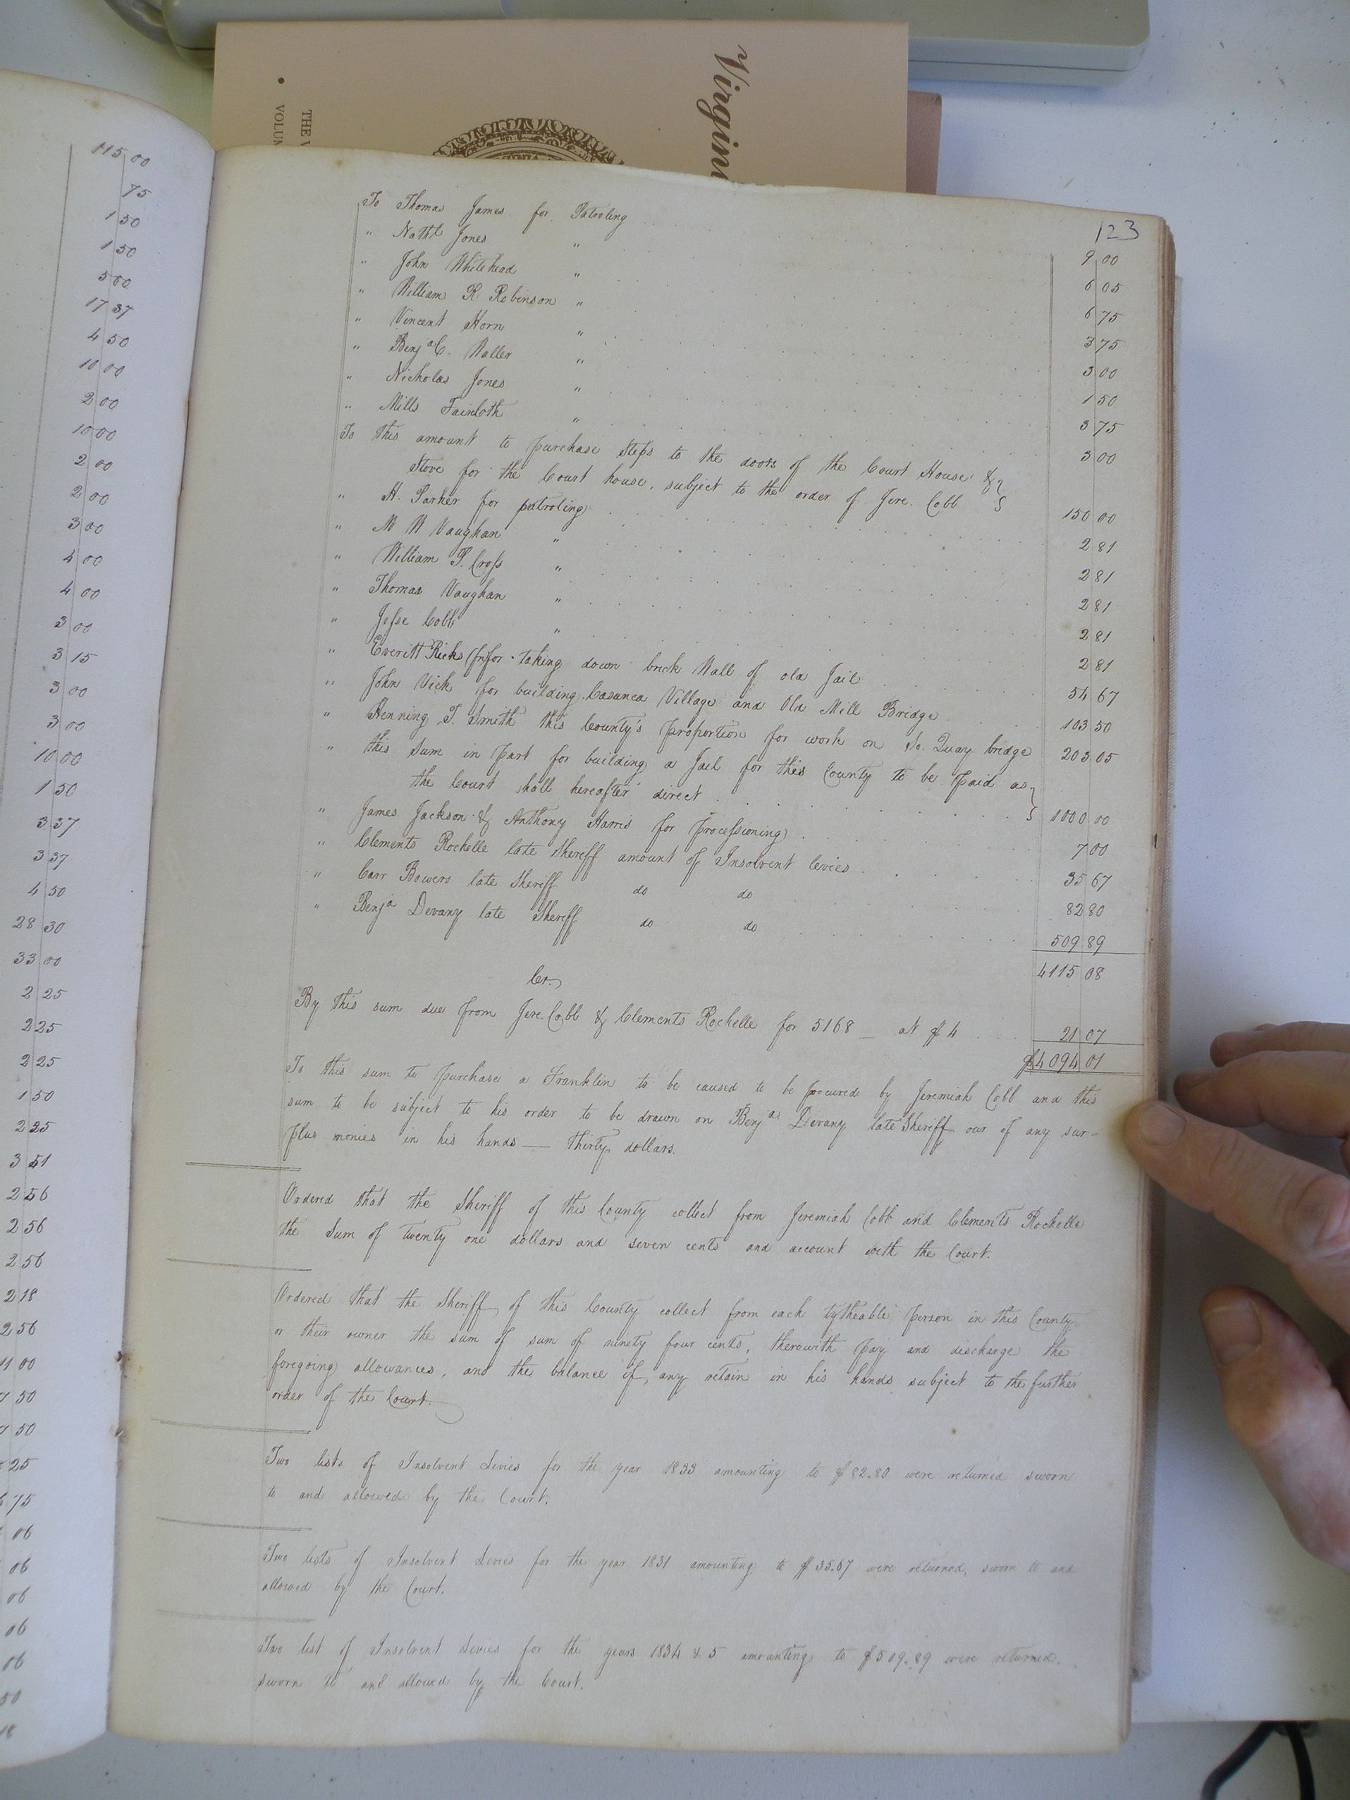 Virgin
THE V
VOLUM
115 00
75
1 50
1 50
5 00
17 37
4 50
10 00
2 00
10 00
2 00
2 00
3 00
4 00
4 00
3 00
3 15
3 00
3 00
10 00
1 50
3 37
3 37
4 50
28 30
33 00
2 25
2 25
2 25
1 50
2 25
3 51
2 56
2 56
2 56
2 18
2 56
11 00
50
50
25
75
06
06
06
06
06
50
18
123
To Thomas James for Patroling 9 00
" Nathl Jones " 6 05
" John Whitehead " 6 75
" William R Robinson " 3 75
" Vincent Horn " 3 00
" Benja C. Waller " 1 50
" Nicholas Jones " 3 75
" Mills Faircloth " 3 00
To this amount to purchase Steps to the doors of the Court House &
Stove for the Court house, subject to the order of Jere. Cobb 150 00
" H. Parker for patroling 2 81
" M W Vaughan " 2 81
" William P. Cross " 2 81
" Thomas Vaughan " 2 81
" Jesse Cobb " 2 81
" Everitt Ricks for taking down brick Wall of old Jail 54 67
" John Vick for building Cosanca Village and Old Mill Bridge 103 50
" Henning T. Smith this County's proportion for work on So. Quay bridge 203 05
" this Sum in part for building a Jail for this County to be paid as
the Court shall hereafter direct 1000 00
" James Jackson & Anthony Harris for processioning 7 00
" Clements Rochelle late Sheriff amount of Insolvent levies 35 67
" Carr Bowers late Sheriff do do 82 80
" Benja Devany late Sheriff do do 509 89
4115 08
Cr.
By this sum due from Jere. Cobb & Clements Rochelle for 5168 at $4 21 07
$4094 01
To this sum to purchase a Franklin to be caused to be procured by Jeremiah Cobb and this
sum to be subject to his order to be drawn on Benja. Devany late Sheriff our of any sur-
plus monies in his hands — thirty dollars.
Ordered that the Sheriff of this County collect from Jeremiah Cobb and Clements Rochelle
the Sum of twenty one dollars and seven cents and account with the Court.
Ordered that the Sheriff of this County collect from each tytheable person in this County
" their owner the sum of sum of ninety four cents, therewith pay and discharge the
foregoing allowances, and the balance if any retain in his hands subject to the further
order of the Court.
Two lists of Insolvent Levies for the year 1833 amounting to $82.80 were returned sworn
to and allowed by the Court.
Two lists of Insolvent Levies for the year 1831 amounting to $35.67 were returned, sworn to and
allowed by the Court.
Two list of Insolvent Levies for the years 1834 & 5 amounting to $509.89 were returned.
sworn to and allowed by the Court.